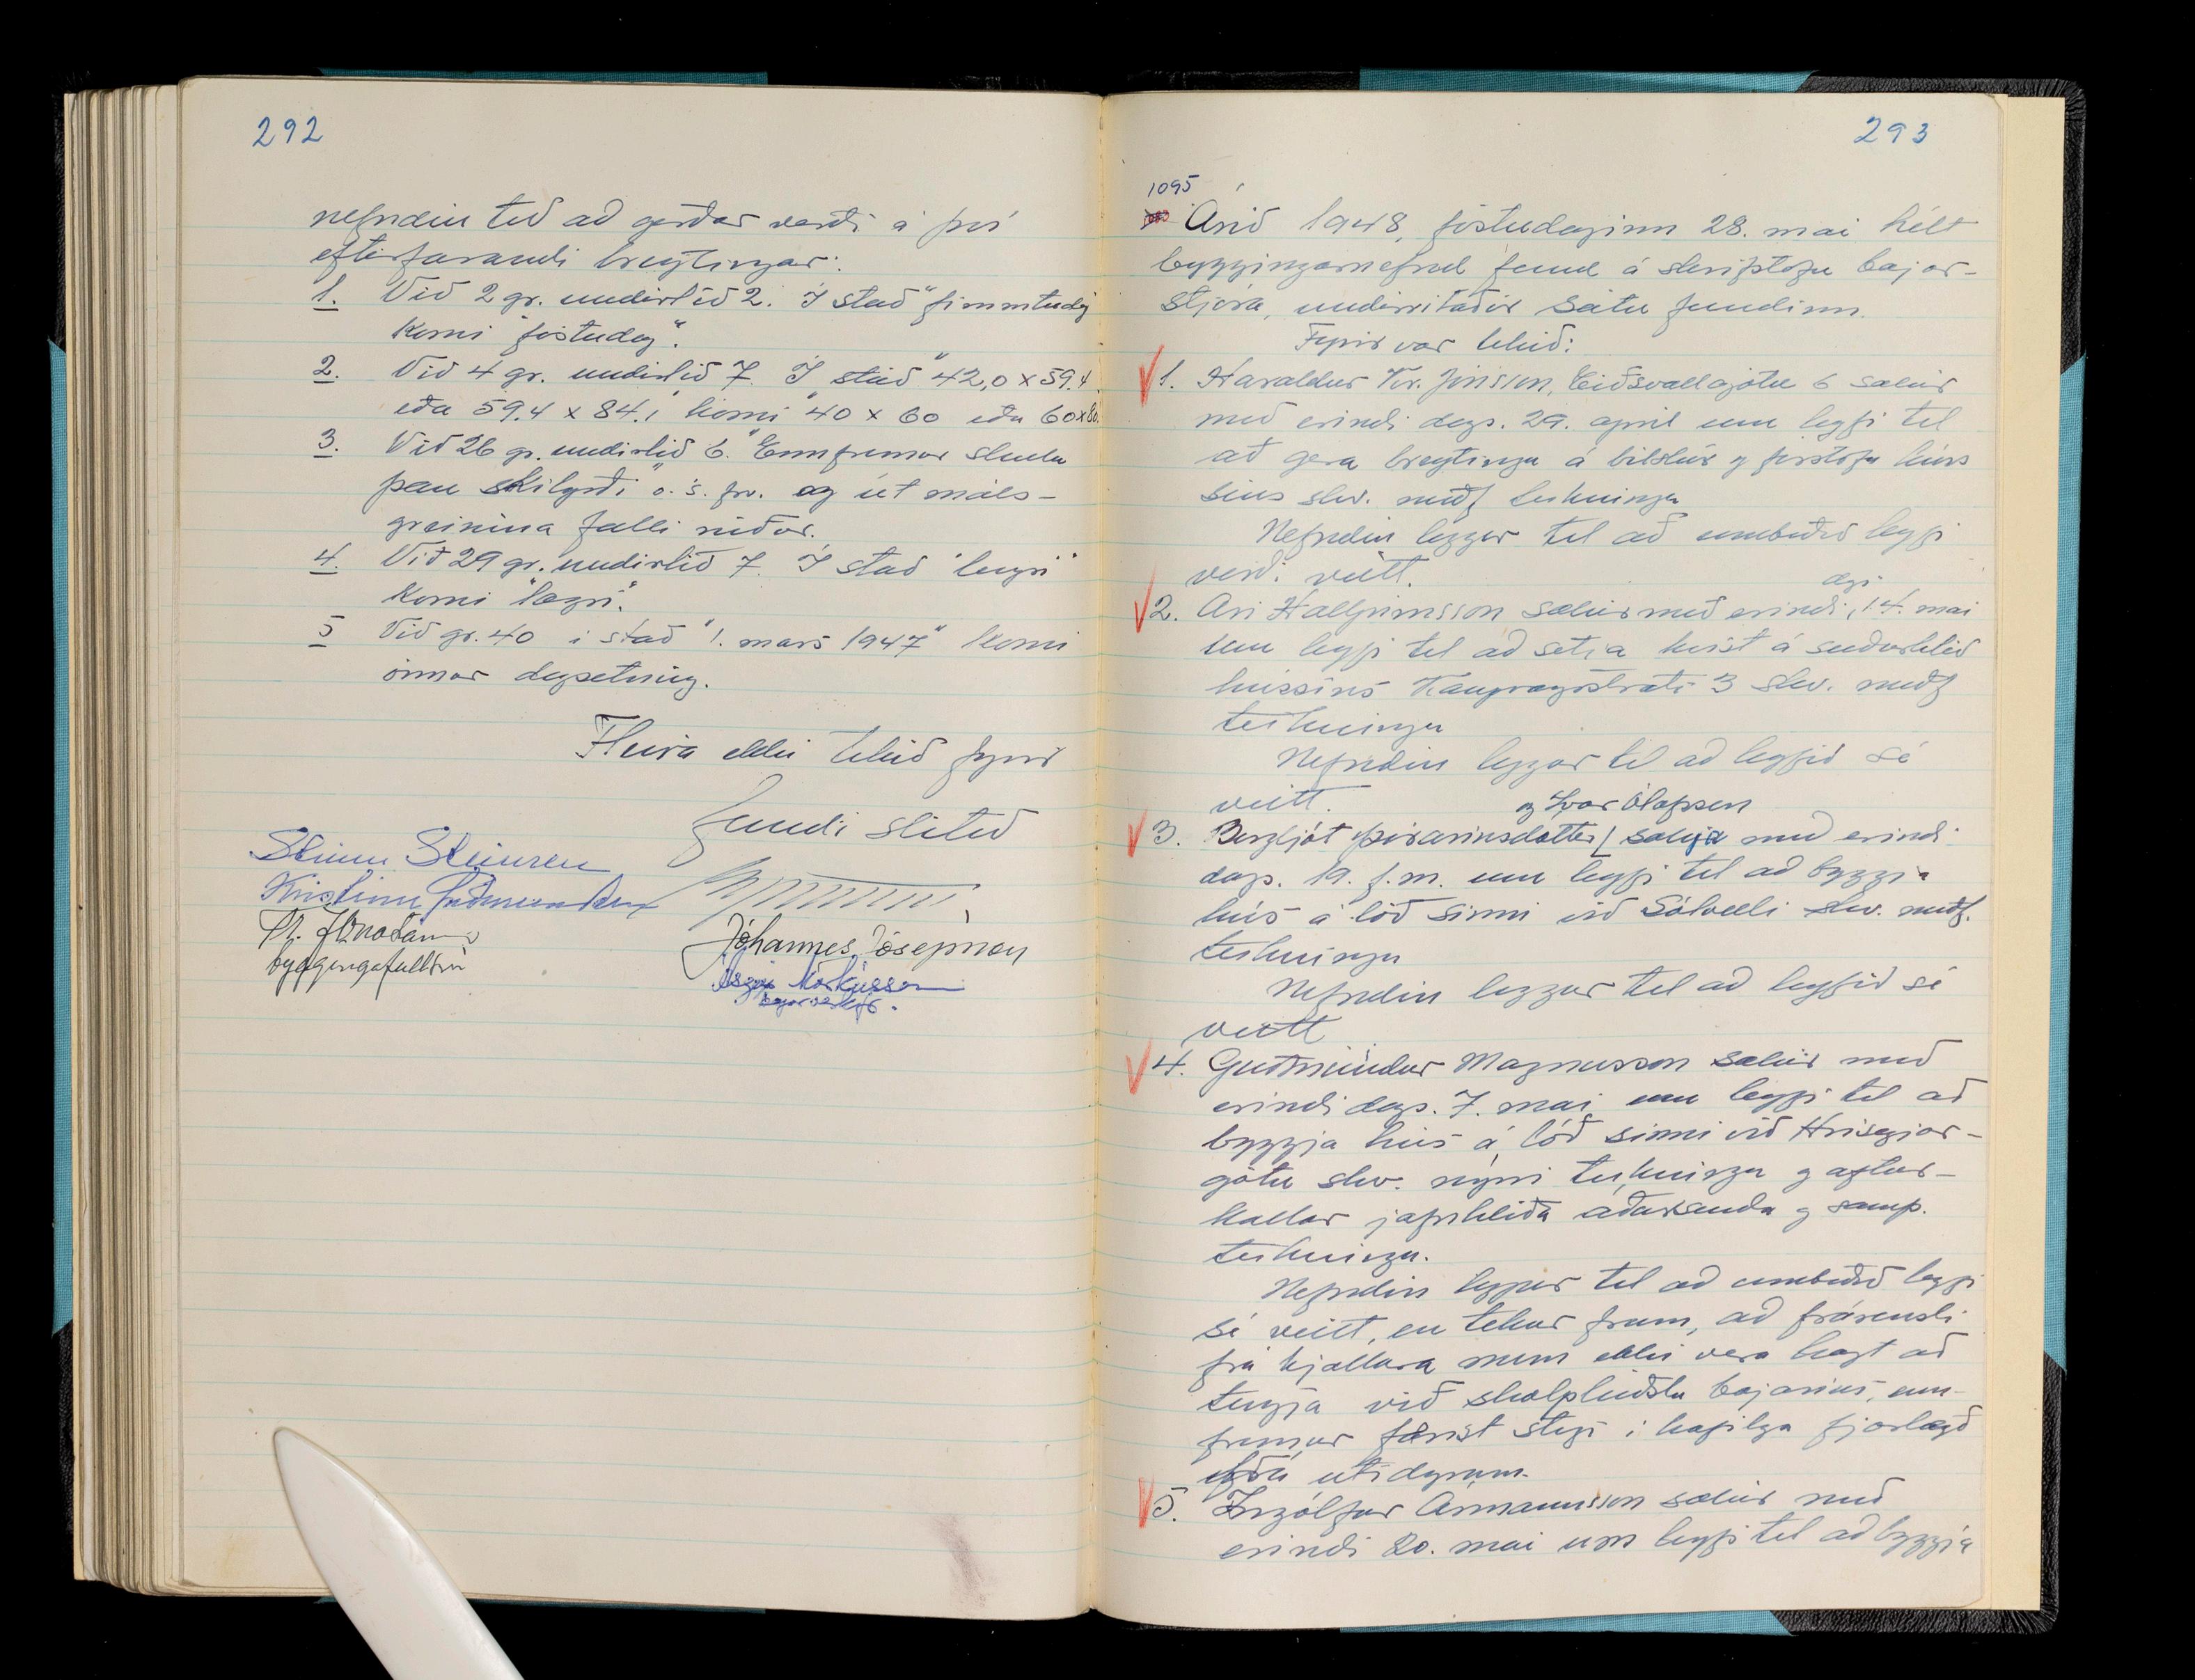 292
nefndin til að gerðar verði á því
eftirfarandi breytingar:
1. Við 2 gr. undirlið 2. Í stað "fimmtudag
komi "föstudag".
2. Við 4 gr. undirlið 7. Í stað "42,0 x 59.4
eða 59.4 x 84.1" komi "40 x 60 eða 60x80.
3. Við 26 gr. undirlið 6. "Ennfremur skulu
þau skilyrði" o.s.frv. og út máls-
greinina falli niður.
4. Við 29 gr. undirlið 7. Í stað "lengri"
komi "lægri".
5 Við gr. 40 í stað "1. mars 1947" komi
önnur dagsetning.
Fleira ekki tekið fyrir
fundi slitið
Steinn Steinsen
Kristinn Guðmundsson
byggingafulltrúi
Jóhannes Jósepsson
293
1095
Árið 1948, föstudaginn 28. mai hélt
byggingarnefnd fund á skrifstofu bæjar-
stjóra, undirritaðir sátu fundinn.
Fyrir var tekið:
1. Haraldur Kr. Jónsson, Eiðsvallagötu 6 sækir
með erindi dags. 29. april um leyfi til
að gera breytingu á bílskúr og forstofu húss
síns skv. meðf teikningu
Nefndin leggur til að umbeðið leyfi
verði veitt.
2. Ari Hallgrímsson sækir með erindi, dags 14. mai
um leyfi til að setja kvist á suðurhlið
hússins Kaupvangsstræti 3 skv. meðf
teikningu
Nefndin leggur til að leyfið sé
veitt.
og Ivar Ólafsson
3. Bergljót Þórarinsdóttir sækja með erindi
dags. 19. f.m. um leyfi til að byggja
hús á lóð sinni við Sólvelli skv. meðf.
teikningu
Nefndin leggur til að leyfið sé
veitt
4. Guðmundur Magnusson sækir með
erindi dags. 7. mai um leyfi til að
byggja hús á lóð sinni við Hríseyjar-
götu skv. nýrri teikningu og aftur-
kallar jafnhliða áðursenda og samþ.
teikningu.
Nefndin leggur til að umbeðið leyfi
sé veitt, en tekur fram, að frárensli
frá kjallara mun ekki vera hægt að
tengja við skolpleiðslu bæjarins, enn-
fremur færist stigi í hæfilega fjarlægð
frá útidyrum.
5. Ingólfur Ármannsson sækir með
erindi 20. mai um leyfi til að byggja